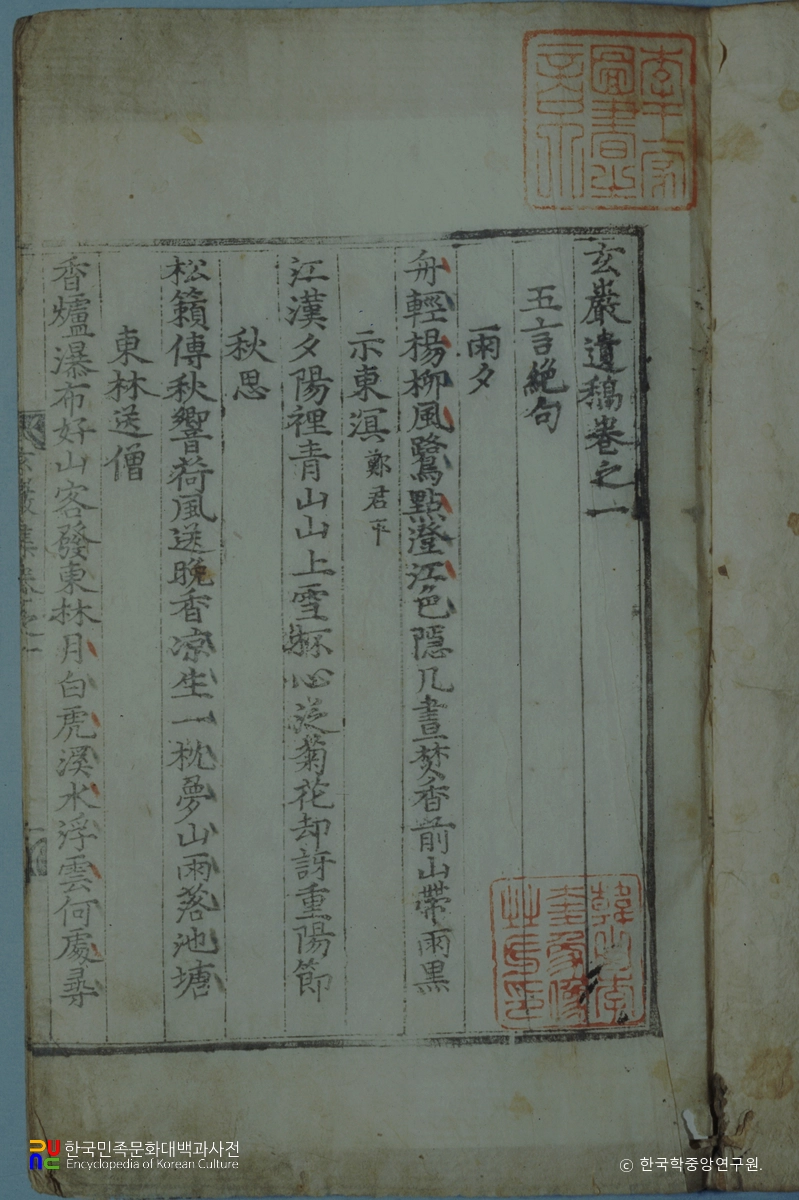 玄巖遺稿卷之一
五言絶句
雨夕
舟輕楊柳風鷺點澄江色隱几晝焚香前山帶雨黑
示東溟鄭君平
江漢夕陽裡青山山上雪杯心泛菊花却訝重陽節
秋思
松籟傳秋響荷風送晩香凉生一枕夢山雨落池塘
東林送僧
香爐瀑布好山客發東林月白虎溪水浮雲何處尋
한국민족문화대백과사전
Encyclopedia of Korean Culture
© 한국학중앙연구원.